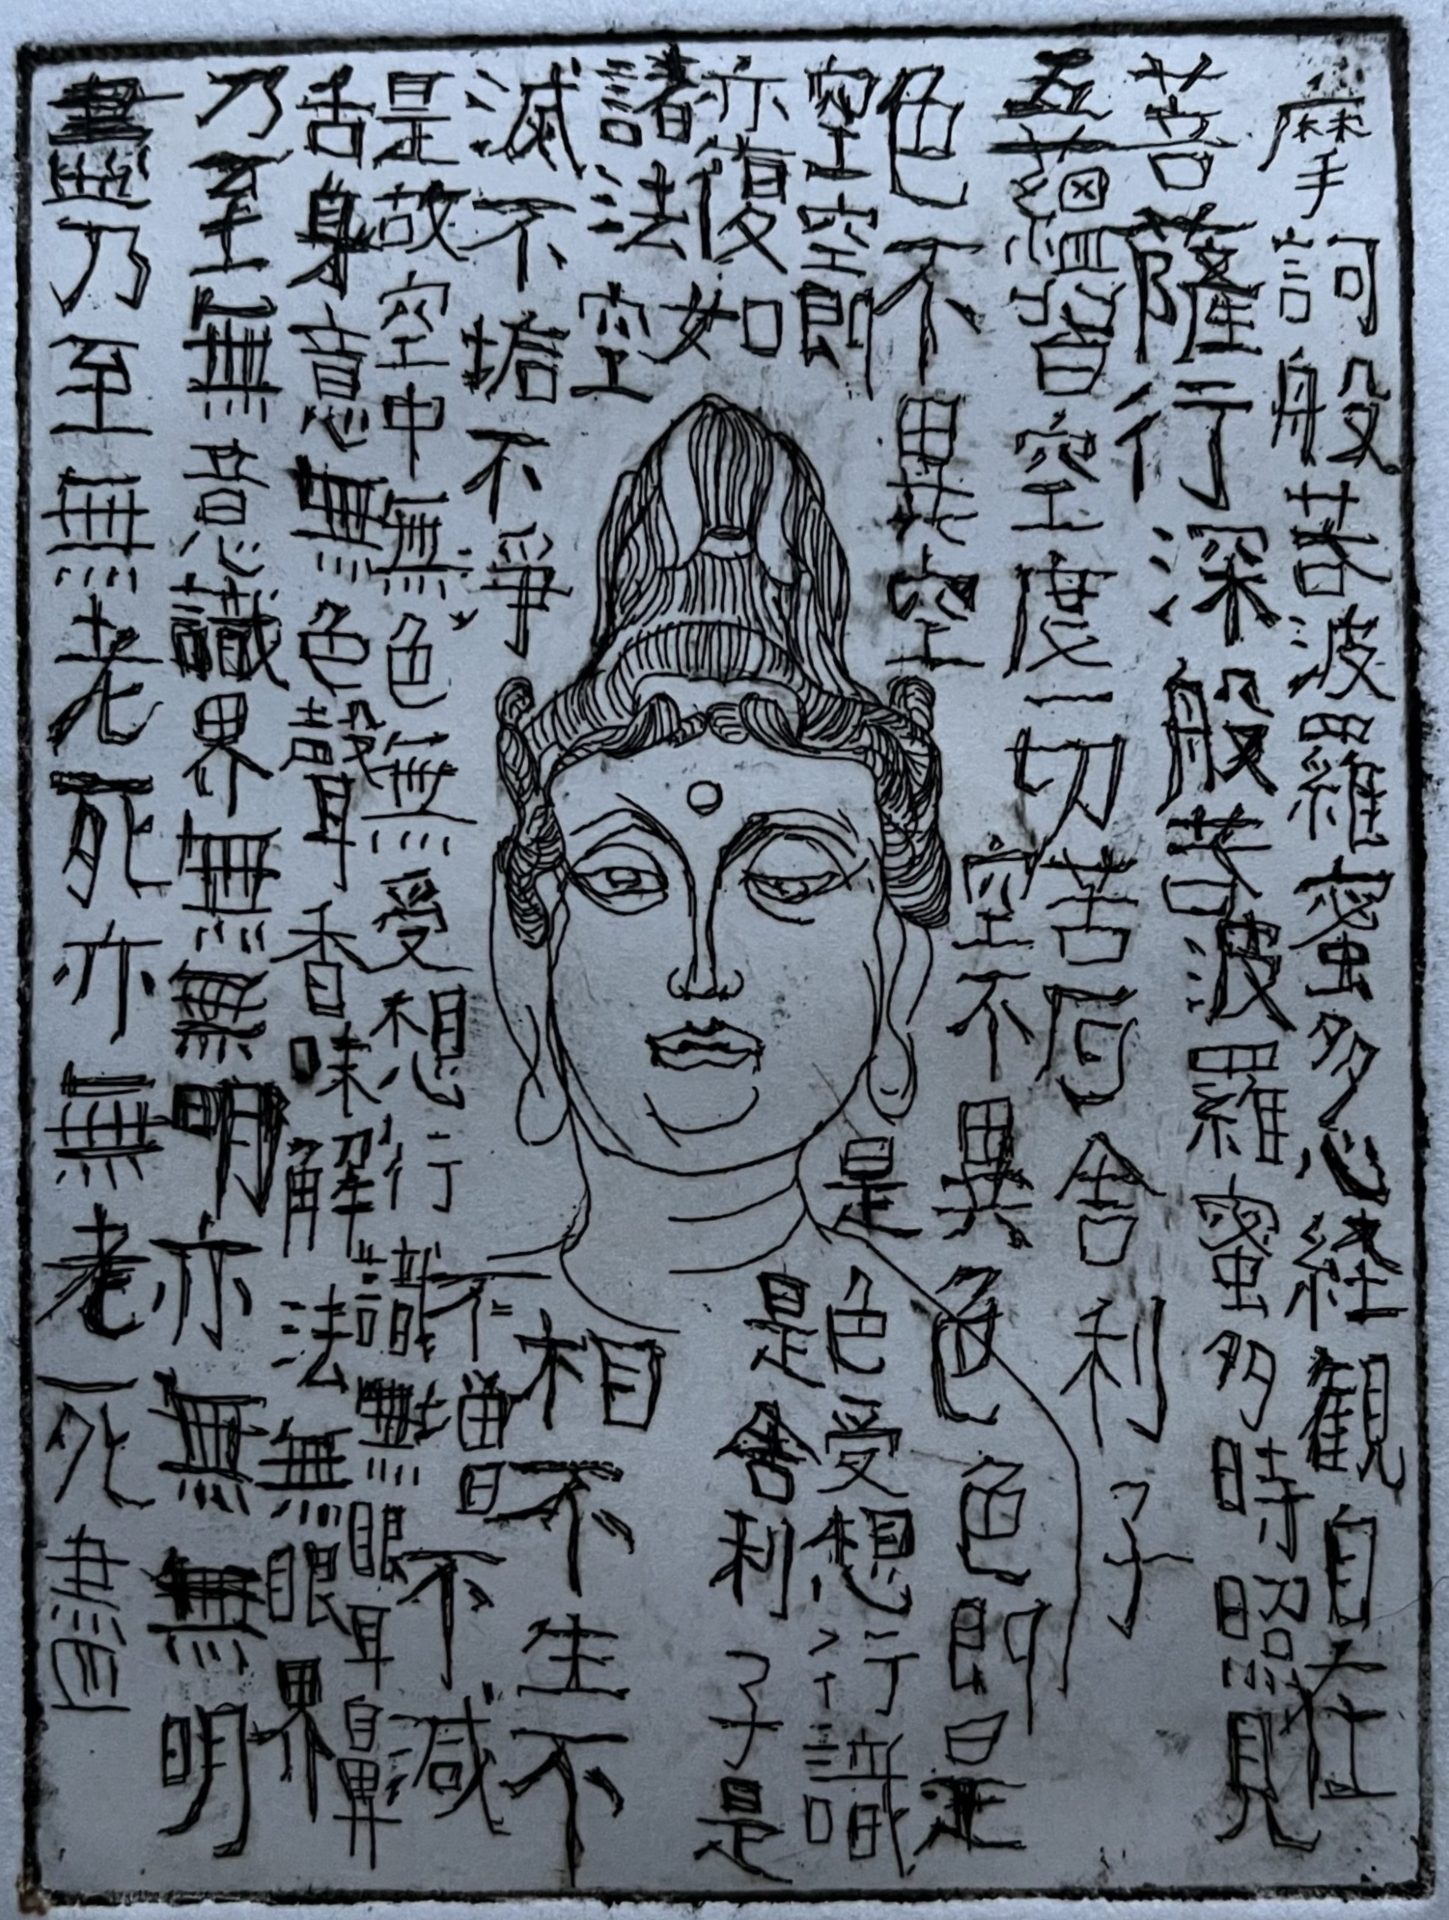 摩訶般若波羅蜜多心経観自在
菩薩行深般若波羅蜜多時照見
五蘊皆空度一切苦厄舎利子
色不異空空不異色色即是
空空即是色受想行識
亦復如是舎利子是
諸法空相不生不
滅不垢不浄不増不減
是故空中無色無受想行識無眼耳鼻
舌身意無色聲香味解法無眼界
乃至無意識界無無明亦無無明
盡無乃至無老死亦無老死盡